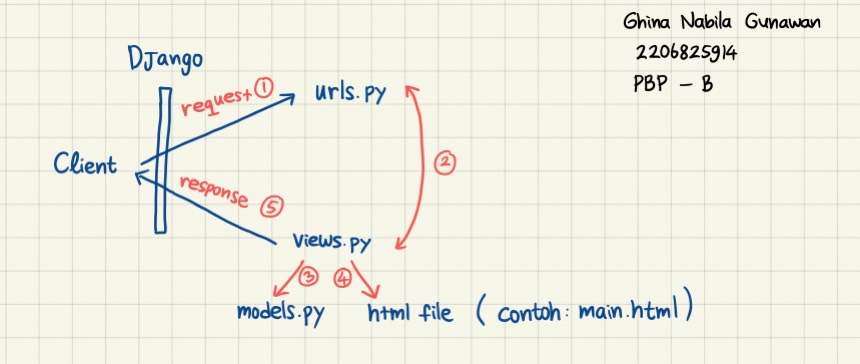 Ghina Nabila Gunawan
2206825914
PBP - B
Django
request ①
urls.py
Client
②
response ⑤
views.py
③ ④
models.py
html file (contoh: main.html)